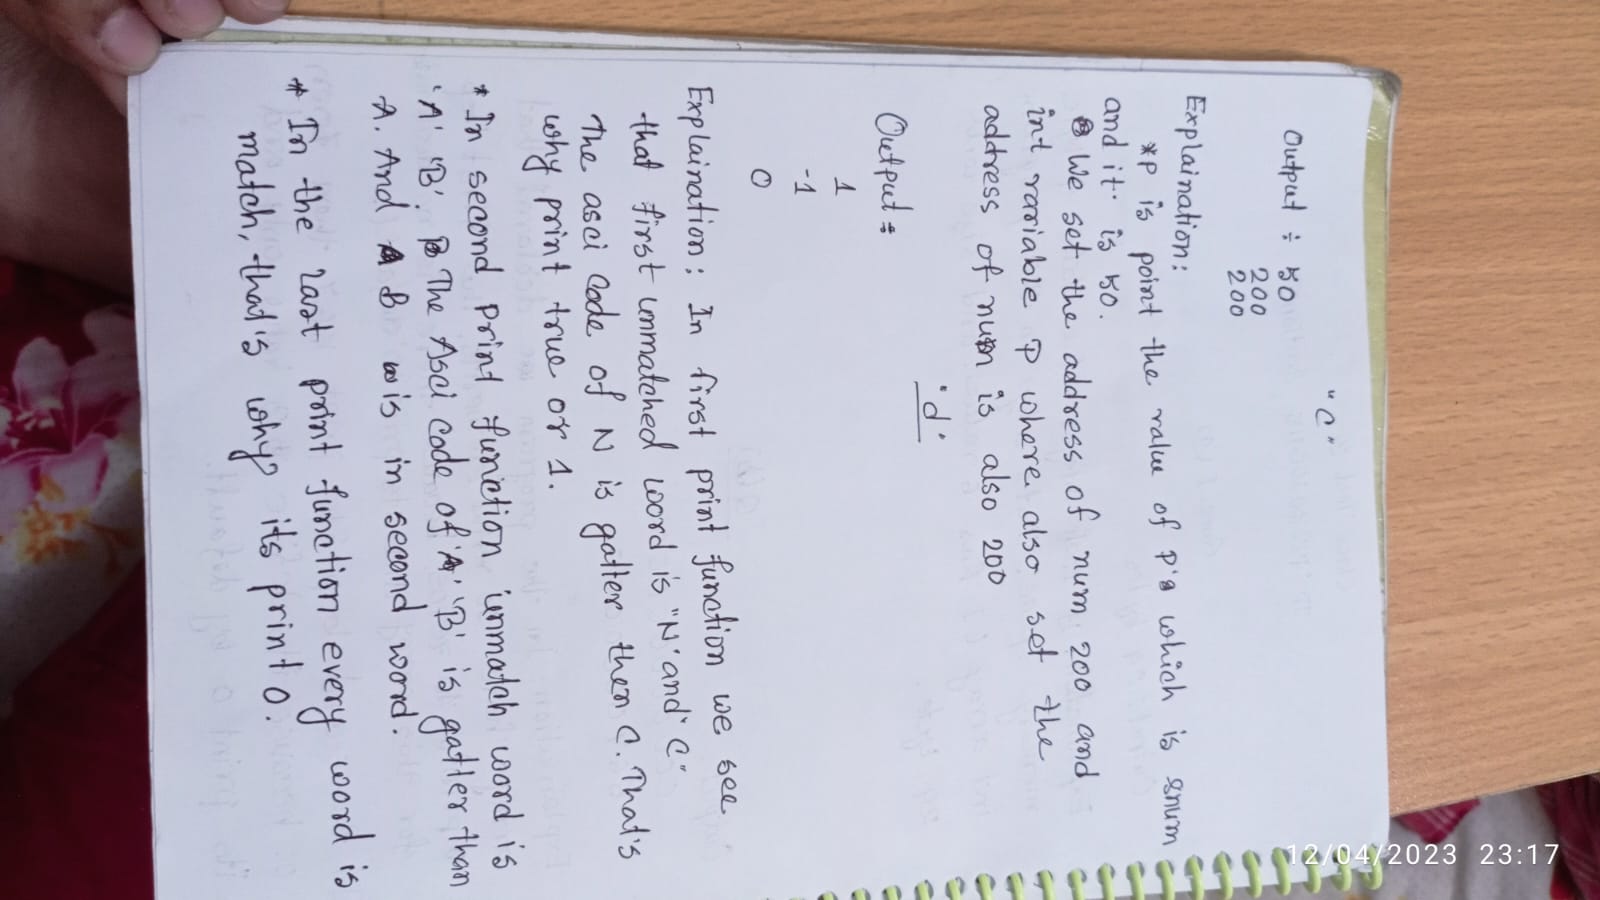 "C"
Output : 50
200
200
Explaination:
*P is point the value of P's which is snum
and it is 50.
We set the address of num 200 and
int variable P where also set the
address of num is also 200
'd'
Output :
1
-1
0
Explaination: In first print function we see
that first unmatched word is "N' and 'C"
The asci code of N is gatter then C. That's
why print true or 1.
* In second print function unmatch word is
'A' 'B'. The Asci code of 'B' is gatter than
A. And B is in second word.
* In the last print function every word is
match, that's why its print 0.
12/04/2023 23:17